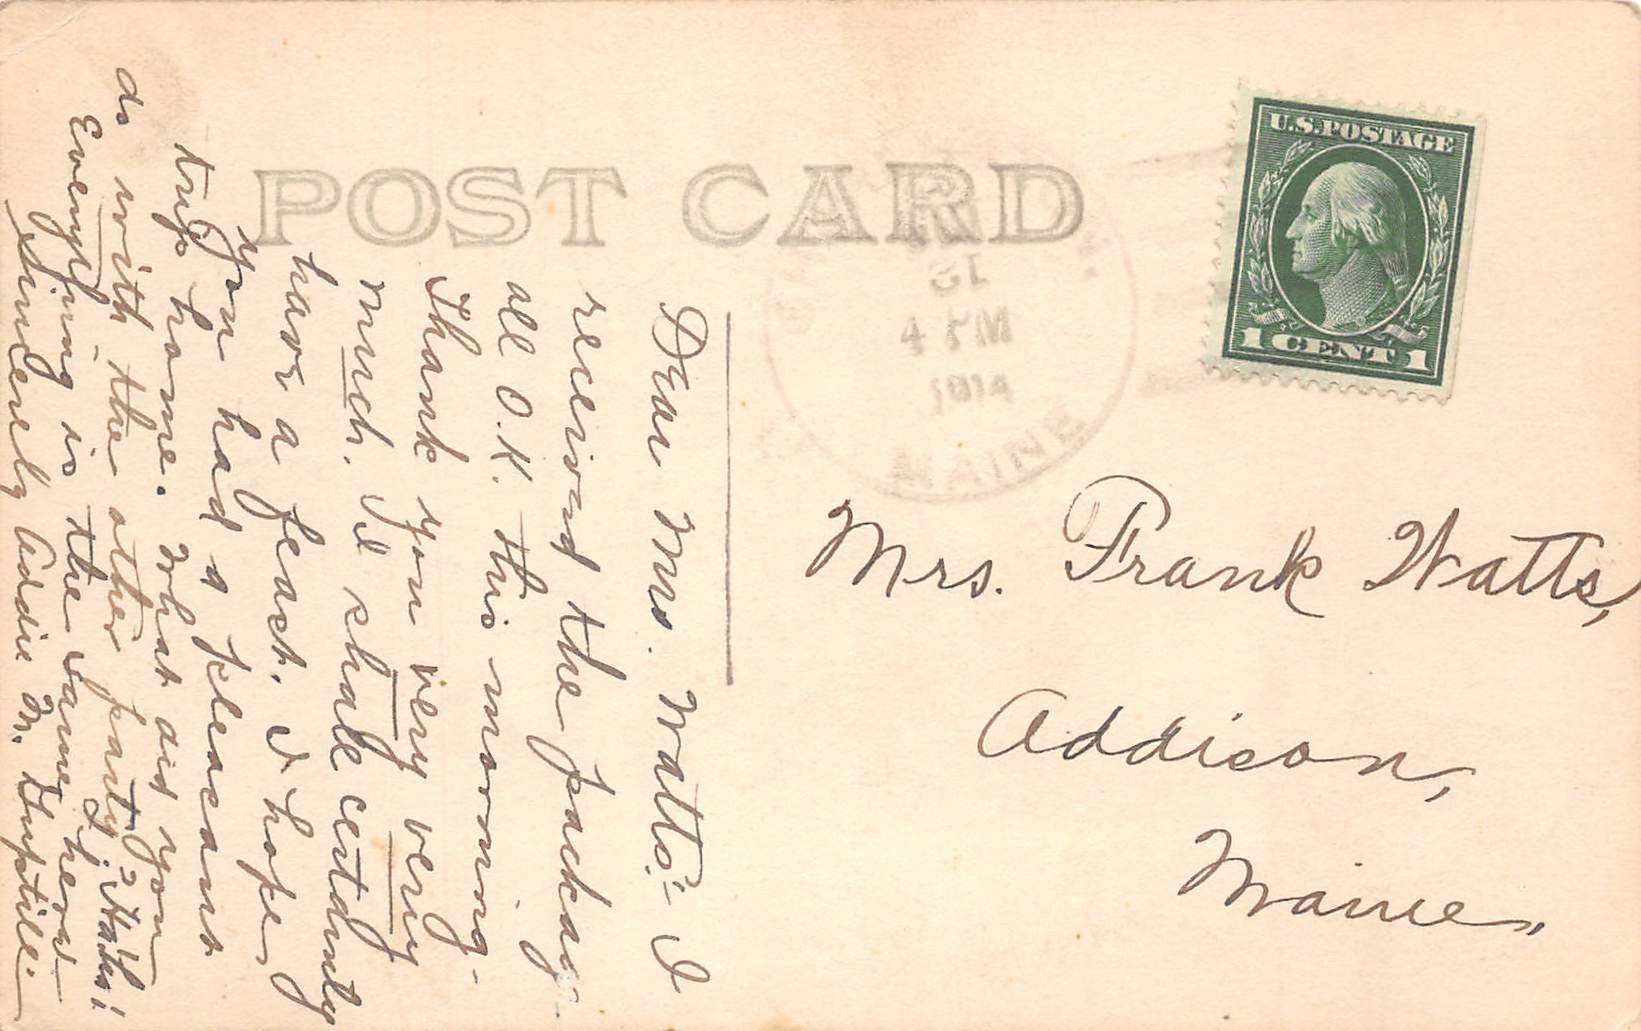 POST CARD
U.S. POSTAGE
1 CENT 1
31
4 PM
1914
MAINE
Mrs. Frank Watts,
Addison,
Maine.
Dear Mrs. Watts:- I
received the package
all O.K. this morning.
Thank you very very
much. I shall certainly
have a feast. I hope
you had a pleasant
trip home. What did you
do with the other party? Haha!
Everything is the same here
Sincerely Addie M. Guptill.